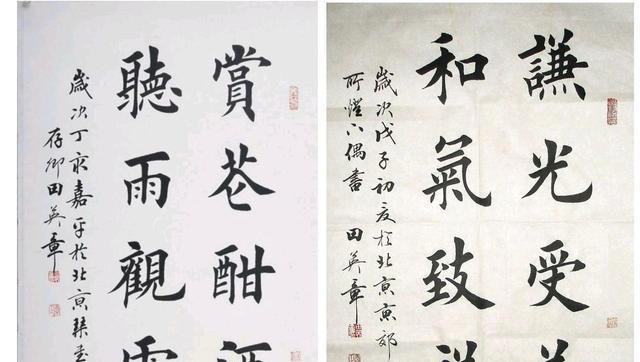 賞花酣酒
聽雨觀
歲次丁亥嘉平於北京
存卿田英章
謙光受
和氣致祥
歲次戊子初夏於北京京郊
偶書 田英章